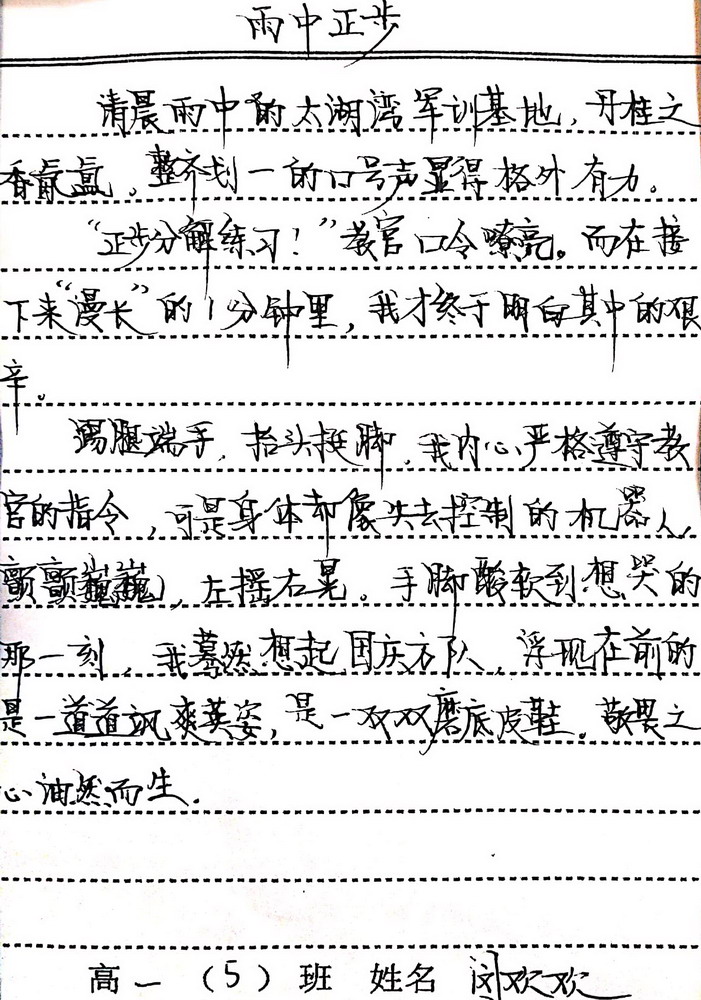 雨中正步
清晨雨中的太湖湾军训基地，丹桂之
香氤氲，整齐划一的口号声显得格外有力。
“正步分解练习！”教官口令嘹亮。而在接
下来“漫长”的1分钟里，我才终于明白其中的艰
辛。
踢腿端手，抬头挺脚，我内心严格遵守教
官的指令，可是身体却像失去控制的机器人，
颤颤巍巍，左摇右晃。手脚酸软到想哭的
那一刻，我蓦然想起国庆方队，浮现在前的
是一道道飒爽英姿，是一双双磨底皮鞋。敬畏之
心油然而生。
高一（5）班 姓名 闵欢欢